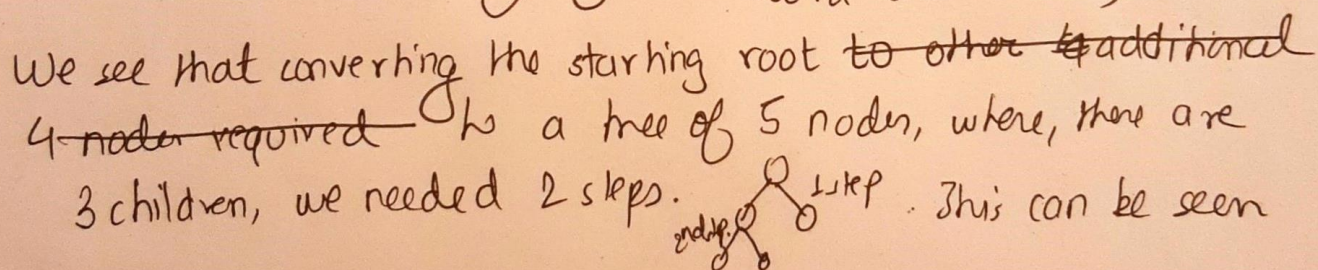 We see that converting the starting root to other 4 additional
4 nodes required to a tree of 5 nodes, where, there are
3 children, we needed 2 steps. 1 step . This can be seen
2nd step